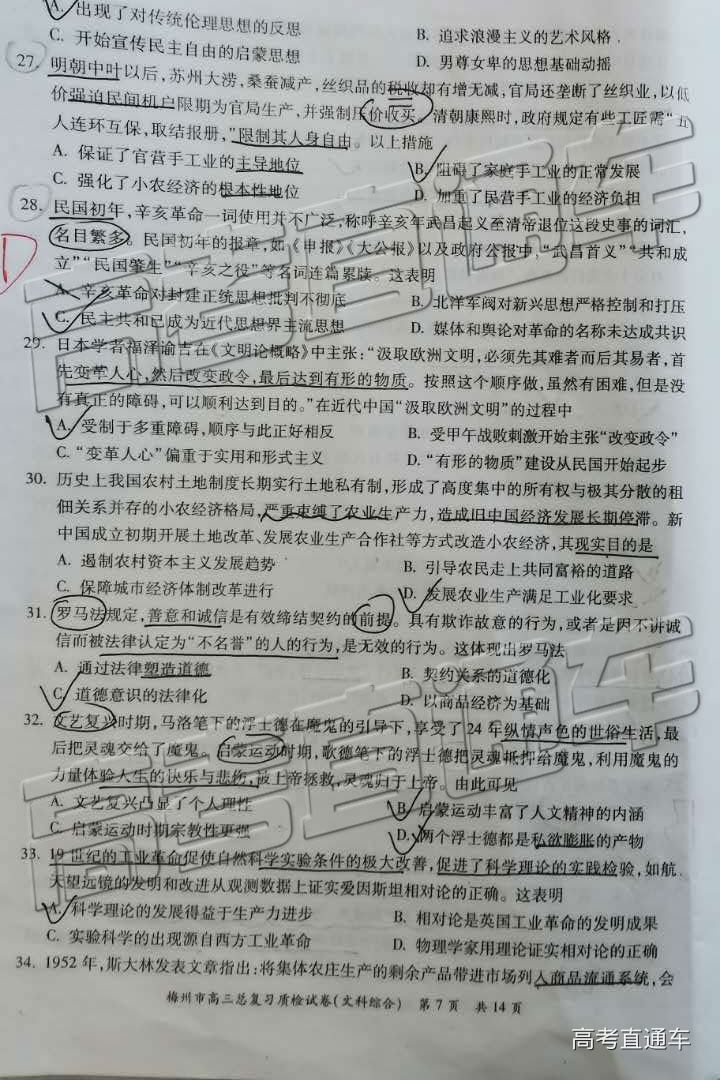 A. 出现了对传统伦理思想的反思
B. 追求浪漫主义的艺术风格
C. 开始宣传民主自由的启蒙思想
D. 男尊女卑的思想基础动摇
27. 明朝中叶以后，苏州大涝，桑蚕减产，丝织品的税收却有增无减，官局还垄断了丝织业，以低
价强迫民间机户限期为官局生产，并强制压价收买。清朝康熙时，政府规定有些工匠需“五
人连环互保，取结报册，”限制其人身自由。以上措施
A. 保证了官营手工业的主导地位
B. 阻碍了家庭手工业的正常发展
C. 强化了小农经济的根本性地位
D. 加重了民营手工业的经济负担
28. 民国初年，辛亥革命一词使用并不广泛，称呼辛亥年武昌起义至清帝退位这段史事的词汇，
名目繁多。民国初年的报章，如《申报》《大公报》以及政府公报中，“武昌首义”“共和成
立”“民国肇生”“辛亥之役”等名词连篇累牍。这表明
D
A. 辛亥革命对封建正统思想批判不彻底
B. 北洋军阀对新兴思想严格控制和打压
C. 民主共和已成为近代思想界主流思想
D. 媒体和舆论对革命的名称未达成共识
29. 日本学者福泽谕吉在《文明论概略》中主张：“汲取欧洲文明，必须先其难者而后其易者，首
先变革人心，然后改变政令，最后达到有形的物质。按照这个顺序做，虽然有困难，但是没
有真正的障碍，可以顺利达到目的。”在近代中国“汲取欧洲文明”的过程中
A. 受制于多重障碍，顺序与此正好相反
B. 受甲午战败刺激开始主张“改变政令”
C. “变革人心”偏重于实用和形式主义
D. “有形的物质”建设从民国开始起步
30. 历史上我国农村土地制度长期实行土地私有制，形成了高度集中的所有权与极其分散的租
佃关系并存的小农经济格局，严重束缚了农业生产力，造成旧中国经济发展长期停滞。新
中国成立初期开展土地改革、发展农业生产合作社等方式改造小农经济，其现实目的是
A. 遏制农村资本主义发展趋势
B. 引导农民走上共同富裕的道路
C. 保障城市经济体制改革进行
D. 发展农业生产满足工业化要求
31. 罗马法规定，善意和诚信是有效缔结契约的前提。具有欺诈故意的行为，或者是因不讲诚
信而被法律认定为“不名誉”的人的行为，是无效的行为。这体现出罗马法
A. 通过法律塑造道德
B. 契约关系的道德化
C. 道德意识的法律化
D. 以商品经济为基础
32. 文艺复兴时期，马洛笔下的浮士德在魔鬼的引导下，享受了24年纵情声色的世俗生活，最
后把灵魂交给了魔鬼。启蒙运动时期，歌德笔下的浮士德把灵魂抵押给魔鬼，利用魔鬼的
力量体验人生的快乐与悲伤，被上帝拯救，灵魂归于上帝。由此可见
A. 文艺复兴凸显了个人理性
B. 启蒙运动丰富了人文精神的内涵
C. 启蒙运动时期宗教性更强
D. 两个浮士德都是私欲膨胀的产物
33. 19世纪的工业革命促使自然科学实验条件的极大改善，促进了科学理论的实践检验，如航
天望远镜的发明和改进从观测数据上证实爱因斯坦相对论的正确。这表明
A. 科学理论的发展得益于生产力进步
B. 相对论是英国工业革命的发明成果
C. 实验科学的出现源自西方工业革命
D. 物理学家用理论证实相对论的正确
34. 1952年，斯大林发表文章指出：将集体农庄生产的剩余产品带进市场列入商品流通系统，会
梅州市高三总复习质检试卷（文科综合） 第7页 共14页
高考直通车
高考直通车
高考直通车